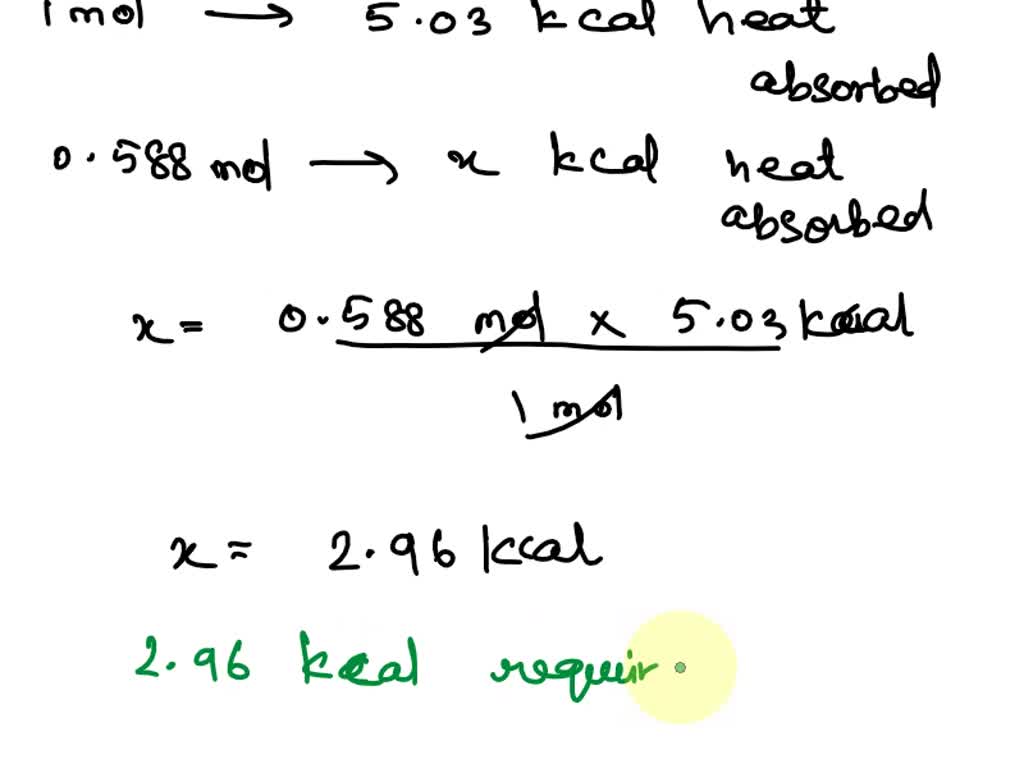 1 mol → 5.03 kcal heat
absorbed
0.588 mol → x kcal heat
absorbed
x = 0.588 mol x 5.03 kcal
1 mol
x = 2.96 kcal
2.96 kcal requir